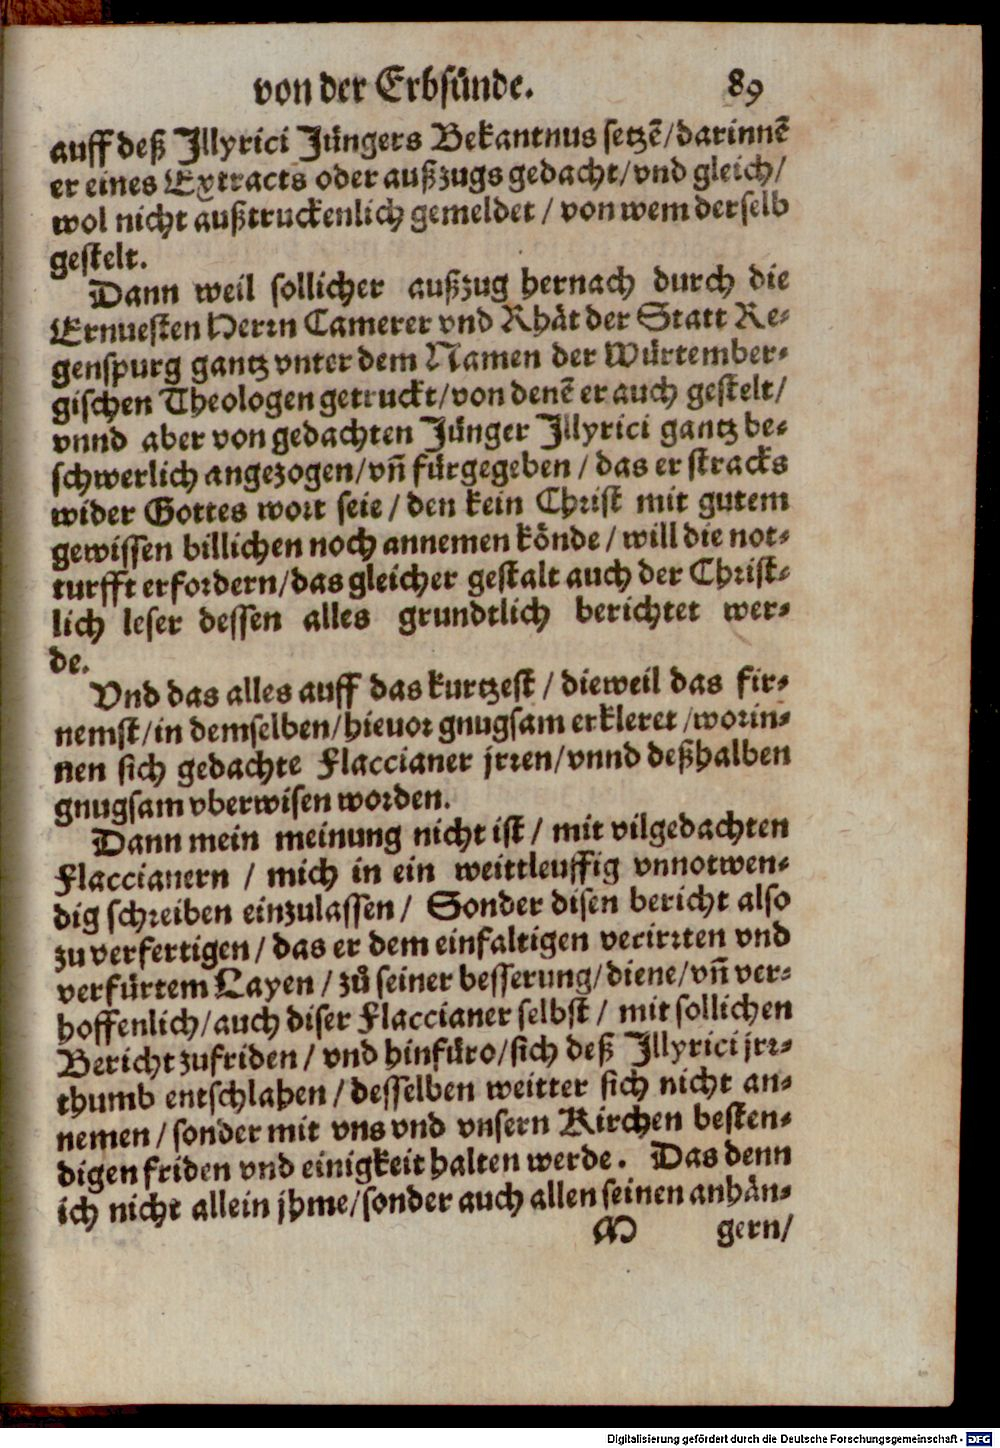 von der Erbsünde. 89
auff deß Illyrici Jüngers Bekantnus setzē/darinnē
er eines Extracts oder außzugs gedacht/vnd gleich/
wol nicht außtruckenlich gemeldet / von wem derselb
gestelt.
Dann weil sollicher außzug hernach durch die
Ernuesten Herrn Camerer vnd Rhät der Statt Re-
genspurg gantz vnter dem Namen der Würtember-
gischen Theologen getruckt/von denē er auch gestelt/
vnnd aber von gedachten Jünger Illyrici gantz be-
schwerlich angezogen/vñ fürgegeben / das er stracks
wider Gottes wort seie / den kein Christ mit gutem
gewissen billichen noch annemen könde / will die not-
turfft erfordern/das gleicher gestalt auch der Christ-
lich leser dessen alles grundtlich berichtet wer-
de.
Vnd das alles auff das kurtzest / dieweil das fir-
nemst/in demselben/hieuor gnugsam erkleret /worin-
nen sich gedachte Flaccianer jrren/vnnd deßhalben
gnugsam vberwisen worden.
Dann mein meinung nicht ist / mit vilgedachten
Flaccianern / mich in ein weittleuffig vnnotwen-
dig schreiben einzulassen / Sonder disen bericht also
zu verfertigen / das er dem einfaltigen verirrten vnd
verfürtem Layen / zů seiner besserung/diene/vñ ver-
hoffenlich/auch diser Flaccianer selbst / mit sollichen
Bericht zufriden / vnd hinfüro/sich deß Illyrici jrr-
thumb entschlahen / desselben weitter sich nicht an-
nemen / sonder mit vns vnd vnsern Kirchen besten-
digen friden vnd einigkeit halten werde. Das denn
ich nicht allein jhme/sonder auch allen seinen anhän-
M gern/
Digitalisierung gefördert durch die Deutsche Forschungsgemeinschaft - DFG